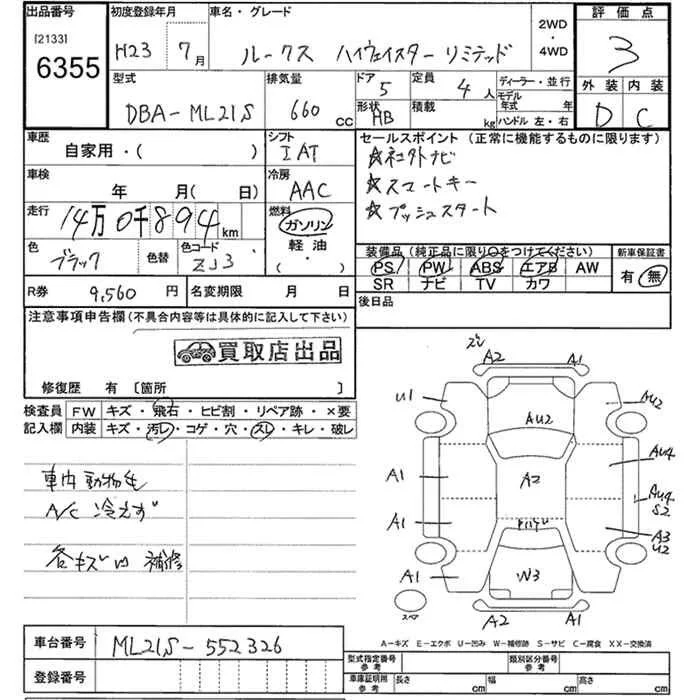 出品番号 初度登録年月 車名・グレード 2WD・4WD 評価点
[2133]
6355 H23 7月 ルークス ハイウェイスター リミテッド 3
型式 排気量 ドア 5 定員 4人 ディーラー・並行 外装 内装
モデル年式 年
DBA-ML21S 660cc 形状 HB 積載 kg ハンドル 左・右 D C
車歴 シフト セールスポイント(正常に機能するものに限ります)
自家用・( ) IAT ☆社外ナビ
車検 冷房 ☆スマートキー
年 月(日) AAC ☆プッシュスタート
走行 14万0千894km 燃料 ガソリン
軽油・( )
色 ブラック 色替 色コード ZJ3
装備品(純正品に限り○をつけてください) 新車保証書
PS PW ABS エアB AW 有・無
SR ナビ TV カワ
R券 9,560円 名変期限 月 日 後日品
注意事項申告欄(不具合内容等は具体的に記入して下さい)
買取店出品
修復歴 有 〔箇所 〕
検査員 FW キズ・飛石・ヒビ割・リペア跡・×要
記入欄 内装 キズ・汚レ・コゲ・穴・スレ・キレ・破レ
車内動物毛
A/C 冷えず
各キズ凹補修
A2 A1
U1 AU2
AU2
A1 A2 AU4
AU4
S2
A1 A3
U2
A1 W3
スペア A2 A1
A-キズ E-エクボ U-凹み W-補修跡 S-サビ C-腐食 XX-交換済
車台番号 ML21S-552326
型式指定番号 参考 類別区分番号 参考
登録番号 車庫証明用 参考 長さ cm 幅 cm 高さ cm